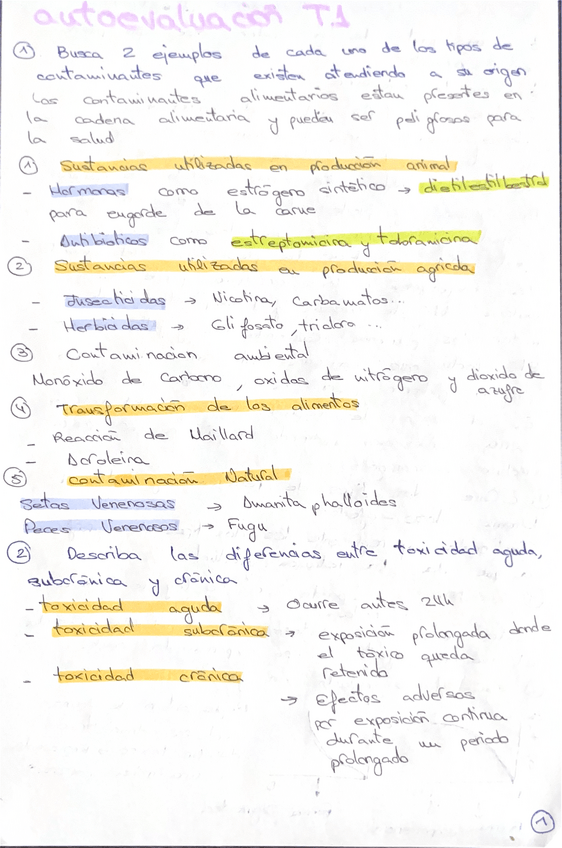 autoevaluación T.1
① Busca 2 ejemplos de cada uno de los tipos de
contaminantes que existen atendiendo a su origen
Los contaminantes alimentarios estan presentes en
la cadena alimentaria y pueden ser peligrosas para
la salud
① Sustancias utilizadas en producción animal
- Hormonas como estrógeno sintético → dietilestilbestrol
para engorde de la carne
- Antibióticos como estreptomicina y tobramicina
② Sustancias utilizadas en producción agrícola
- Insecticidas → Nicotina, Carbamatos...
- Herbicidas → Glifosato, tricloro ...
③ Contaminacion ambiental
Monóxido de Carbono, oxidos de nitrógeno y dioxido de
azufre
④ Transformación de los alimentos
- Reacción de Maillard
- Acroleina
⑤ contaminación Natural
Setas Venenosas → Amanita phalloides
Peces Venenosos → Fugu
② Describa las diferencias entre toxicidad aguda,
subcrónica y crónica
- toxicidad aguda → Ocurre antes 24h
- toxicidad subcrónica → exposición prolongada donde
el tóxico queda
retenido
- toxicidad crónica
→ Efectos adversos
por exposición continua
durante un periodo
prolongado
①